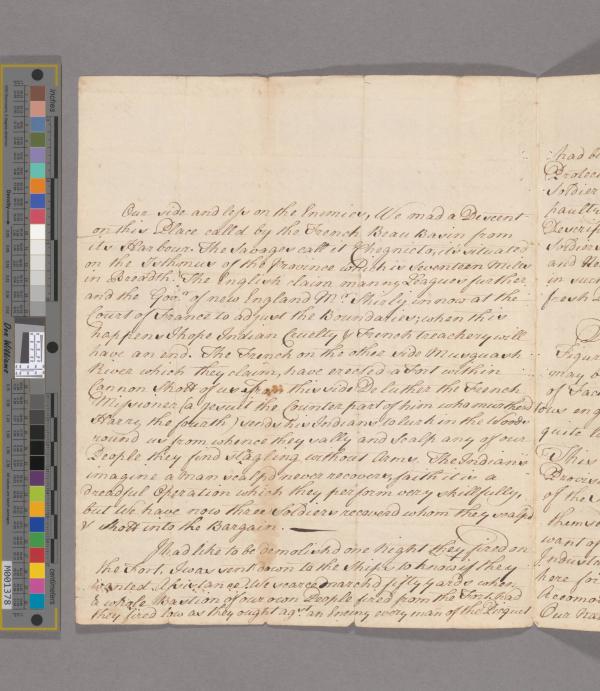 Our side and less on the Enemies, We mad a Descent
on this Place calld by the French Beau Basin from
its Harbour. The Savages call it Chegnicto, its situated
on the Isthmus of the Province which is Seventeen Miles
in Breadth. The Inglish claim manny Leagues further
and the Govr. of new England Mr. Shirly is now at the
Court of France to adjust the Boundaries, when this
happens I hope Indian Cruelty & French treachery will
have an end. The French on the other side Musquash
River which they claim, have erected a Fort within
Cannon Shott of us from this side De luther the French
Missioner (a Jesuit the Counter part of him who murtherd
Harry the fourth) sends his Indians to lurk in the Woods
round us from whence they sally and Scalp any of our
People they find stagling without Arms. The Indians
imagine a man scalpd never recovers, faith it is a
dreadful Operation which they perform very skillfully,
but We have now three Soldiers recoverd whom they scalpd
& shott into the Bargain.
I had like to be demolishd one Night they fired on
the Fort. I was sent down to the Ships to know if they
wanted Assistance. We scarce marchd fifty yards when
a whole Bastion of our own People fired from the Fort, had
they fired low as they ought agst. an Enemy every man of the Picquet
had be
Protec
Soldier
fault
Descrip
Soldiers
and He
in such
fresh
Figur
may b
of Sac
ous eng
quite l
This
Provis
of the S
themse
want of
Industr
here for
Accomo
Our Nav
Doe Williams
inches
centimeters
Density
M001378